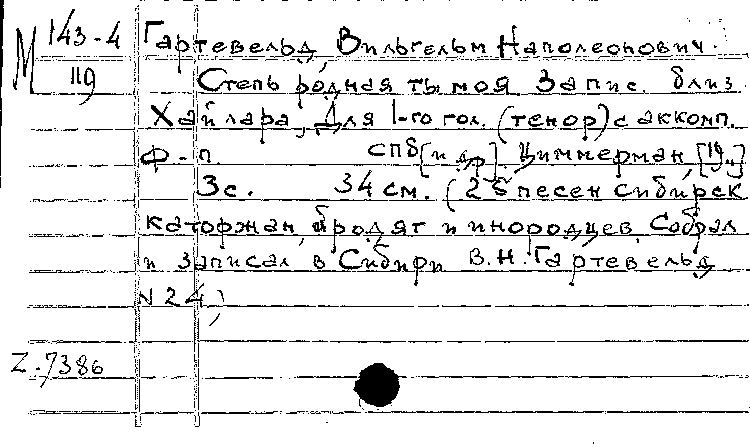 М 143-4 Гартевельд, Вильгельм Наполеонович.
119 Степь родная ты моя. Запис. близ
Хайлара. Для 1-го гол. (тенор) с аккомп.
ф-п. СПб [и др.], Циммерман, [19..]
3 с. 34 см. (25 песен сибирск
каторжан, бродяг и инородцев. Собрал
и записал в Сибири В.Н. Гартевельд
N 24)
Z-7386